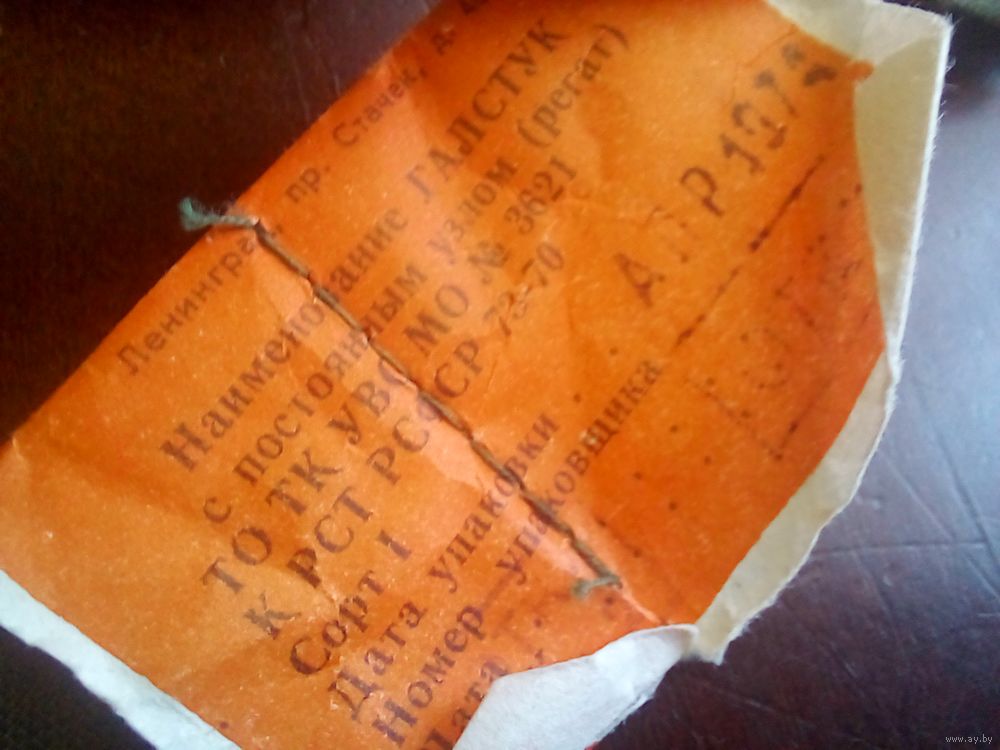 Ленинград, пр. Стачек, д.
Наименование ГАЛСТУК
с постоянным узлом (регат)
ТО ТК УВС МО № 3621
К РСТ РСФСР 73-70
Сорт 1
Дата упаковки АПР 197
Номер упаковщика
www.ay.by